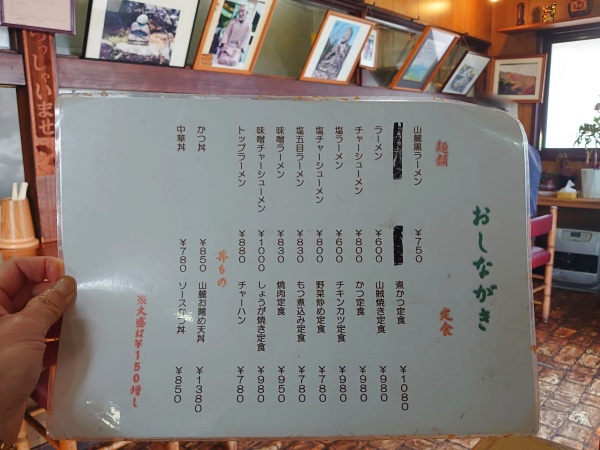 っしゃいませ
おしながき
麺類
山麓黒ラーメン ¥750
ラーメン ¥600
チャーシューメン ¥800
塩ラーメン ¥600
塩チャーシューメン ¥800
塩五目ラーメン ¥830
味噌ラーメン ¥830
味噌チャーシューメン ¥1000
トップラーメン ¥880
定食
煮かつ定食 ¥1080
山賊焼き定食 ¥980
かつ定食 ¥980
チキンカツ定食 ¥980
野菜炒め定食 ¥780
もつ煮込み定食 ¥780
焼肉定食 ¥950
しょうが焼き定食 ¥980
チャーハン ¥780
丼もの
かつ丼 ¥850
中華丼 ¥780
山麓お薦め天丼 ¥1380
ソースかつ丼 ¥850
※大盛は¥150増し